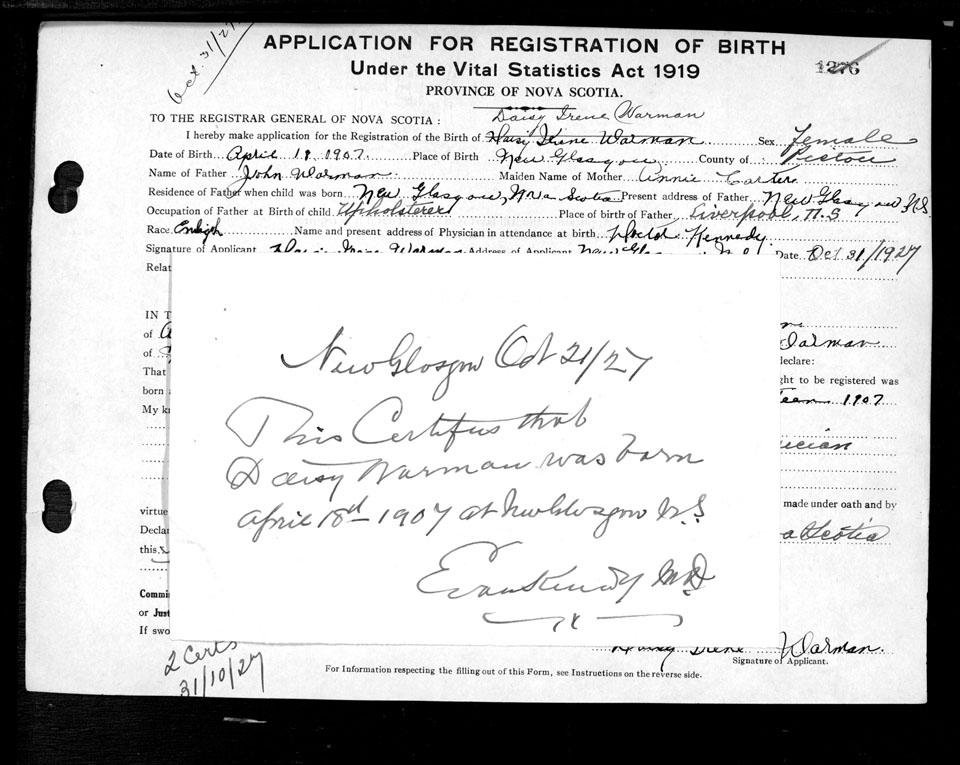 Oct. 31/27
APPLICATION FOR REGISTRATION OF BIRTH
Under the Vital Statistics Act 1919
1276
PROVINCE OF NOVA SCOTIA.
Daisy Irene Warman
TO THE REGISTRAR GENERAL OF NOVA SCOTIA :
I hereby make application for the Registration of the Birth of Daisy Irene Warman Sex Female
Date of Birth April 18 1907. Place of Birth New Glasgow County of Pictou
Name of Father John Warman Maiden Name of Mother Annie Carter
Residence of Father when child was born New Glasgow, Nova Scotia Present address of Father New Glasgow N.S
Occupation of Father at Birth of child Upholsterer Place of birth of Father Liverpool, N.S
Race English Name and present address of Physician in attendance at birth Doctor Kennedy.
Signature of Applicant Daisy Irene Warman Address of Applicant New Date Oct 31/1927
Relat
IN T
of
Warman
of
declare:
That
ght to be registered was
born
teen 1907
My k
ician
virtue
made under oath and by
Declar
a Scotia
this
Commi
or Just
If swo
New Glasgow Oct 31/27
This Certifies that
Daisy Warman was born
April 18th 1907 at New Glasgow N.S
Evan Kennedy MD
Daisy Irene Warman.
Signature of Applicant.
For Information respecting the filling out of this Form, see Instructions on the reverse side.
2 Certs
31/10/27